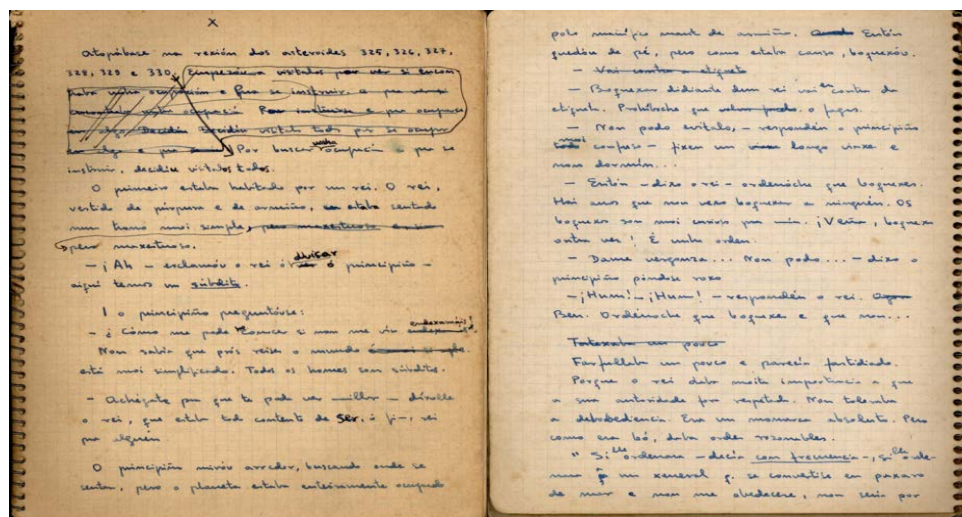 X
Atopábase na rexión dos asteroides 325, 326, 327,
328, 329 e 330. Empezóu a visitalos por ver si encon
traba unha ocupación e pra se instruir.
Por buscar unha ocupación e pra se
instruir, decidíu visitalos todos.
O primeiro estaba habitado por un rei. O rei,
vestido de púrpura e de armiño, estaba sentado
nun trono moi sempre, pero maxestuoso
pero maxestuoso.
— ¡Ah — esclamóu o rei ó divisar ó principiño —
aiquí temos un súbdito.
I o principiño preguntóuse:
— ¿Cómo me pode conocer si non me viu endexamáis!
Non sabía que prós reises o mundo
está moi simplificado. Todos os homes son súbditos.
— Achégate pra que te poda ver millor — díxolle
o rei, que estaba todo contento de ser, ó fin, rei
pra alguén.
O principiño miróu arredor, buscando onde se
sentar, pero o planeta estaba enteiramente ocupado
polo manífico mant de armiño. Entón
quedóu de pé, pero como estaba canso, boquexóu.
— Vai contra a etiqueta
— Boquexar didiante dun rei vai en contra da
etiqueta. Prohíboche que o fagas.
— Non podo evitalo, — respondéu o principiño
moi confuso — fixen un longo viaxe e
non dormín...
— Entón — dixo o rei — ordénoche que boquexes.
Hai anos que non vexo boquexar a ninguén. Os
boquexos son moi curiosos pra min. ¡Veña, boquexa
outra vez! É unha orden.
— Dame vergonza... Non podo... — dixo o
principiño póndose roxo
— ¡Hum! — ¡Hum! — respondéu o rei.
Ben. Ordénoche que boquexes e que non...
Farfallaba un pouco
Farfollaba un pouco e parecía fastidiado.
Porque o rei daba moita importancia a que
a súa autoridade fora respetada. Non toleraba
a desobediencia. Era un monarca absoluto. Pero
como era bó, daba ordes razonables.
"Si lle ordenara — decía con frecuencia —, si lle orde-
nara a un xeneral q. se convertise en paxaro
de mar e non me obedecese, non sería por